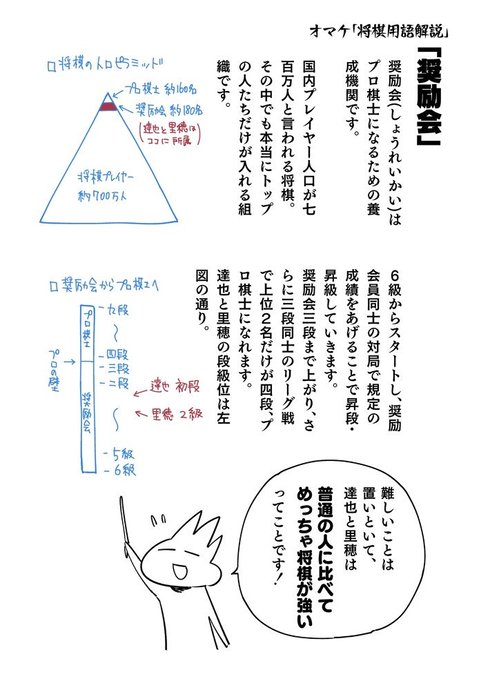 オマケ「将棋用語解説」
「奨励会」
奨励会(しょうれいかい)は
プロ棋士になるための養
成機関です。
国内プレイヤー人口が七
百万人と言われる将棋。
その中でも本当にトップ
の人たちだけが入れる組
織です。
□将棋の人口ピラミッド
プロ棋士 約160名
奨励会 約180名
(達也と里穂は
ココに所属)
将棋プレイヤー
約700万人
6級からスタートし、奨励
会員同士の対局で規定の
成績をあげることで昇段・
昇級していきます。
奨励会三段まで上がり、さ
らに三段同士のリーグ戦
で上位2名だけが四段、プ
ロ棋士になれます。
達也と里穂の段級位は左
図の通り。
□奨励会からプロ棋士へ
プロ棋士
奨励会
プロの壁
九段
四段
三段
二段
達也 初段
里穂 2級
5級
6級
難しいことは
置いといて、
達也と里穂は
普通の人に比べて
めっちゃ将棋が強い
ってことです!